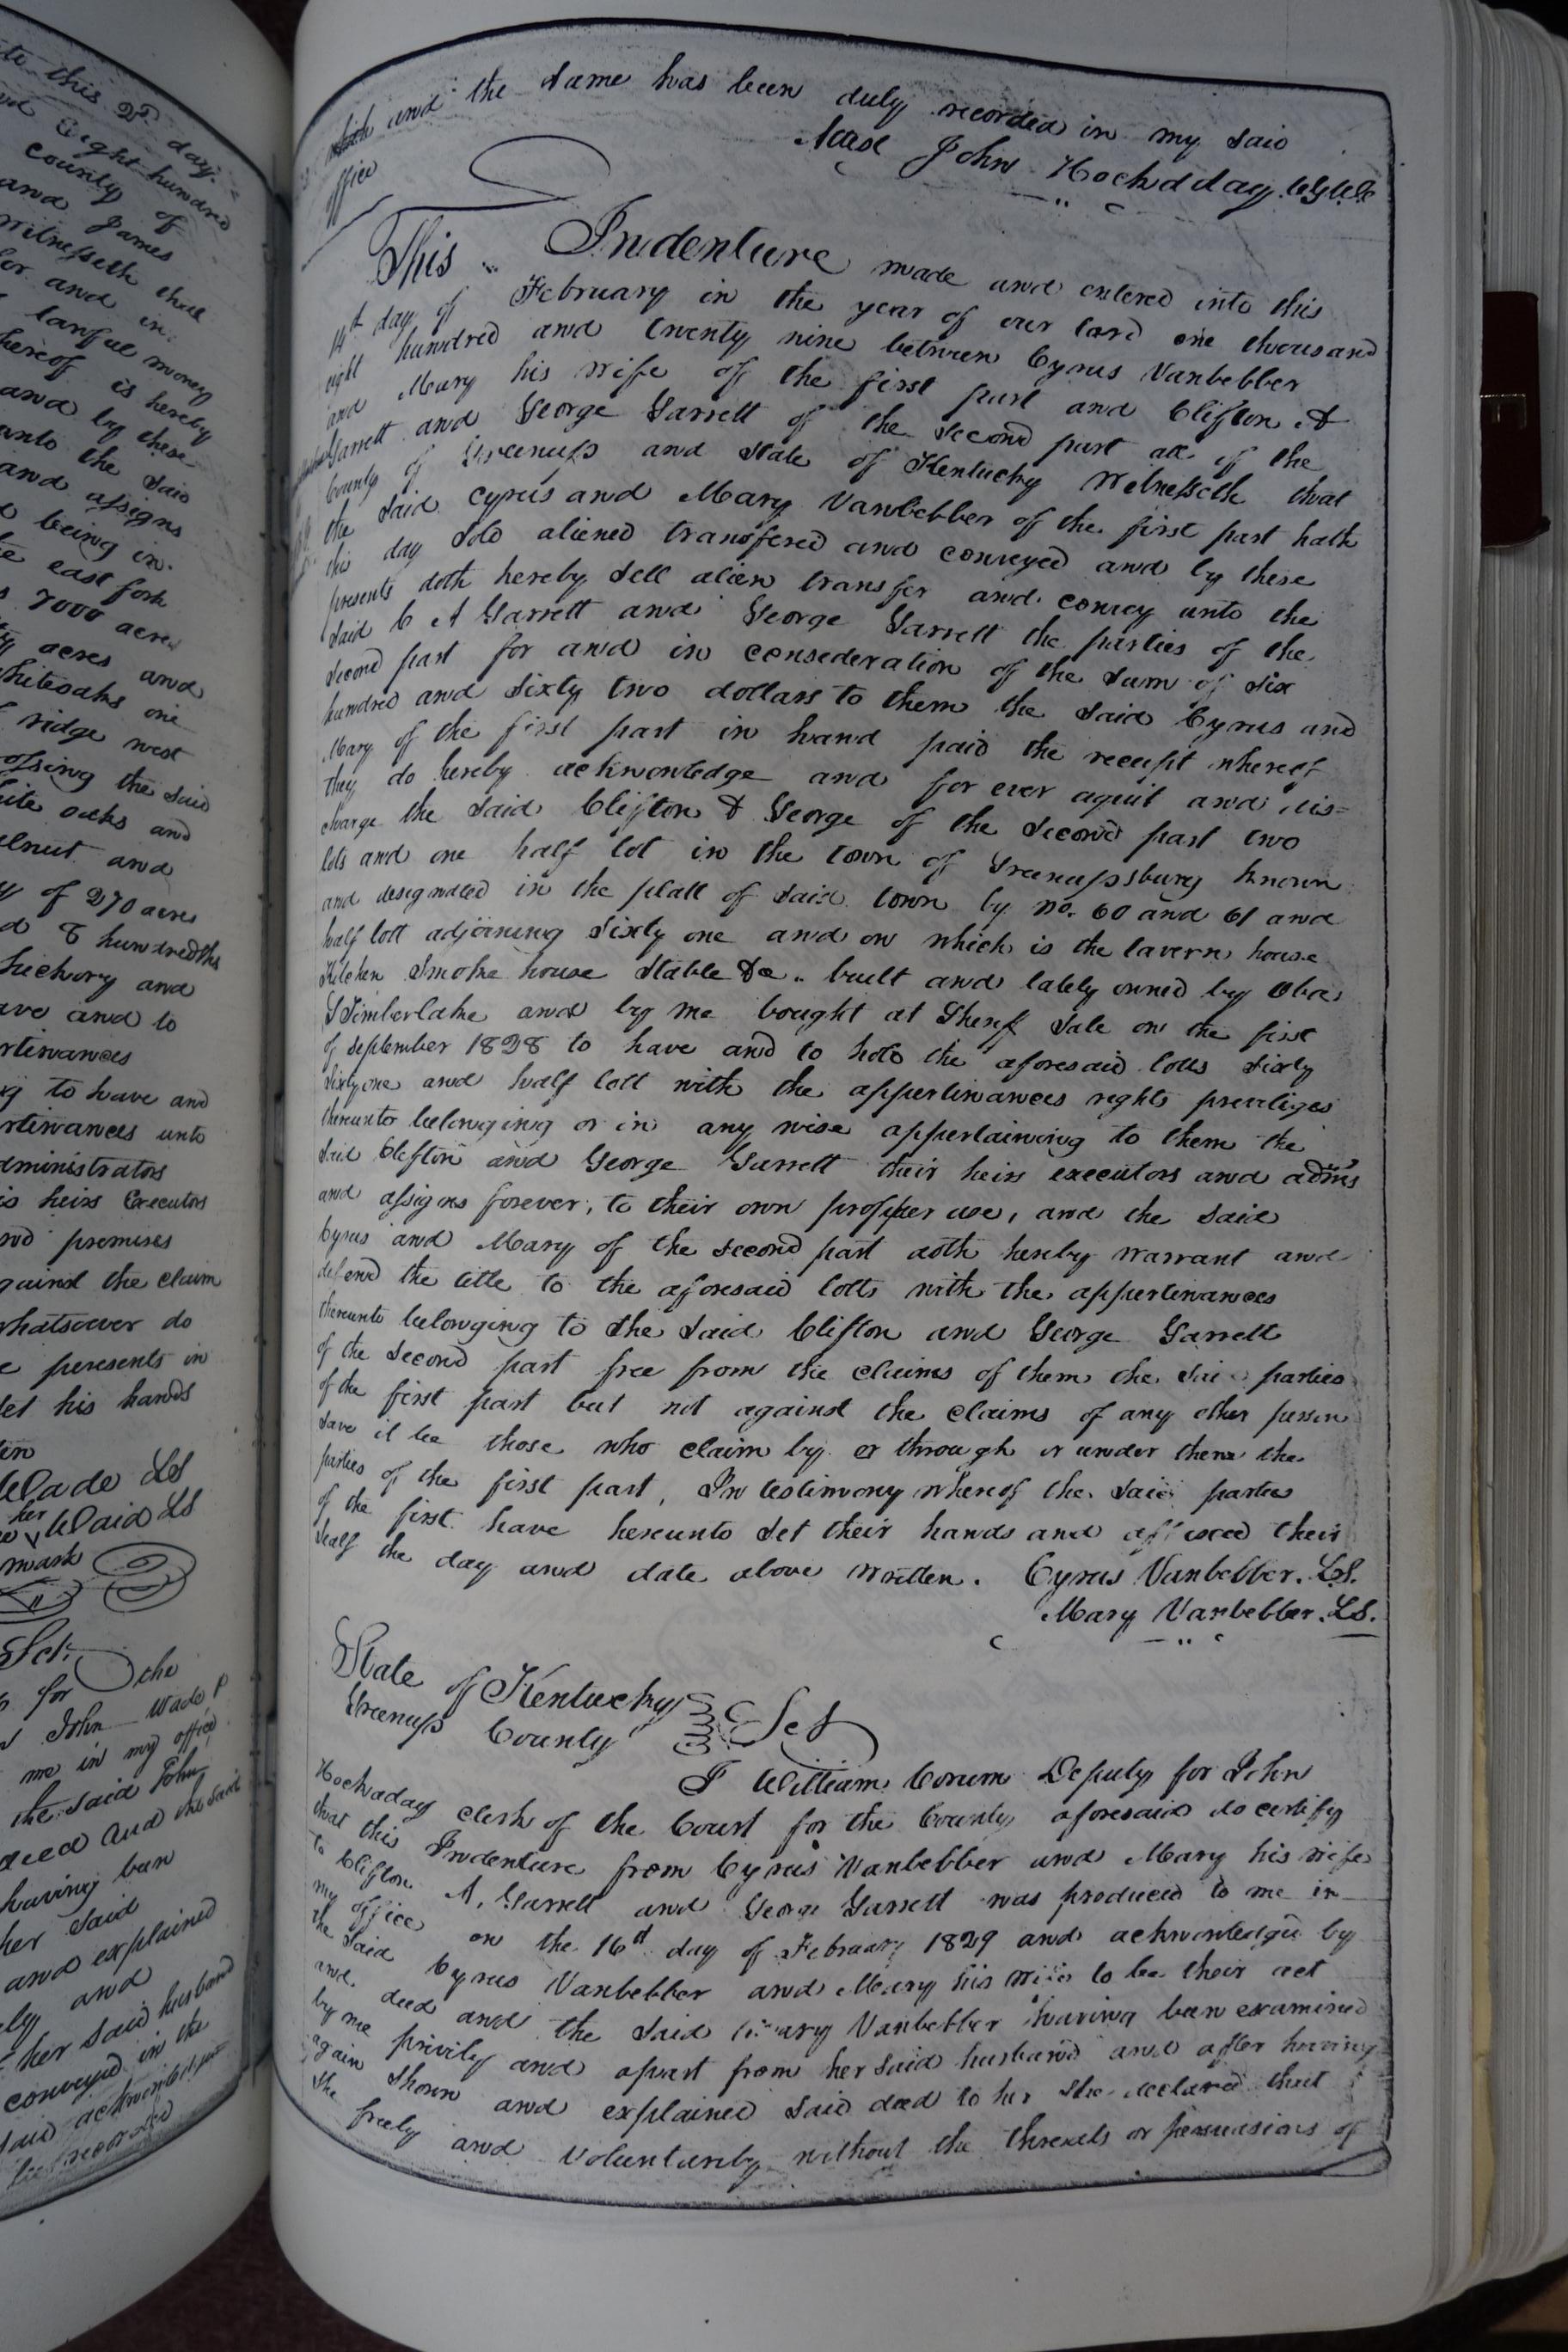 te this 2d day
nd Eight hundred
County of
and James
Witnesseth that
for and in
lanful money
hereof is hereby
and by these
unto the Said
and assigns
d being in
te east fork
7000 acres
acres and
whiteoaks one
ridge west
ossing the said
ite oaks and
elnut and
y of 270 acres
d 8 hundredths
hickory and
ave and to
rtinances
g to have and
rtinances unto
dministrators
is heirs Executors
nd premises
gainst the claim
whatsoever do
e presents in
set his hands
Wade LS
her
Waid LS
mark
Sct.
for the
John Wade
me in my office
the said John
deed and the said
having been
her Said
and explained
ly and
her said husband
conveyed in the
said
be recorded
and the same has been duly recorded in my said
office
Attest John Hockaday C G C C
This Indenture made and entered into this
14th day of February in the year of our lord one thousand
eight hundred and twenty nine between Cyrus Vanbebber
and Mary his wife of the first part and Clifton A
Garrett and George Garrett of the Second part all of the
County of Greenups and State of Kentucky Witnesseth that
the Said Cyrus and Mary Vanbebber of the first part hath
this day Sold aliened transfered and conveyed and by these
presents doth hereby Sell alien transfer and convey unto the
Said C A Garrett and George Garrett the parties of the
Second part for and in consederation of the Sum of Six
hundred and Sixty two dollars to them the Said Cyrus and
Mary of the first part in hand paid the receipt whereof
they do hereby acknowledge and for ever aquit and dis=
charge the Said Clifton & George of the Second part two
lots and one half lot in the town of Greenupsburg known
and designated in the platt of Said town by No. 60 and 61 and
half lott adjoining Sixty one and on which is the tavern house
Kitchen Smoke house Stable &c built and lately owned by Oba
S Timberlake and by me bought at Sheriff Sale on the first
of September 1828 to have and to hold the aforesaid lotts Sixty
Sixty one and half lott with the appertinances rights previliges
thereunto belonging or in any wise appertaining to them the
Said Clifton and George Garrett their heirs executors and adms
and assigns forever, to their own propper use, and the Said
Cyrus and Mary of the second part doth hereby warrant and
defend the title to the aforesaid lotts with the appertinances
thereunto belonging to the Said Clifton and George Garrett
of the Second part free from the claims of them the Said parties
of the first part but not against the claims of any other person
Save it be those who claim by or through or under them the
parties of the first part, In testimony whereof the Said parties
of the first have hereunto Set their hands and affixed their
Seals the day and date above written. Cyrus Vanbebber. LS.
Mary Vanbebber. LS.
State of Kentucky
Greenups County Sct
I William Corum Deputy for John
Hockaday clerk of the Court for the County aforesaid do certify
that this Indenture from Cyrus Vanbebber and Mary his wife
to Clifton A. Garrett and George Garrett was produced to me in
my office on the 16th day of February 1829 and acknowledged by
the Said Cyrus Vanbebber and Mary his wife to be their act
and deed and the Said Mary Vanbebber having been examined
by me privily and apart from her Said husband and after having
again Shown and explained Said deed to her She declared that
She freely and Voluntarily without the threats or persuasions of